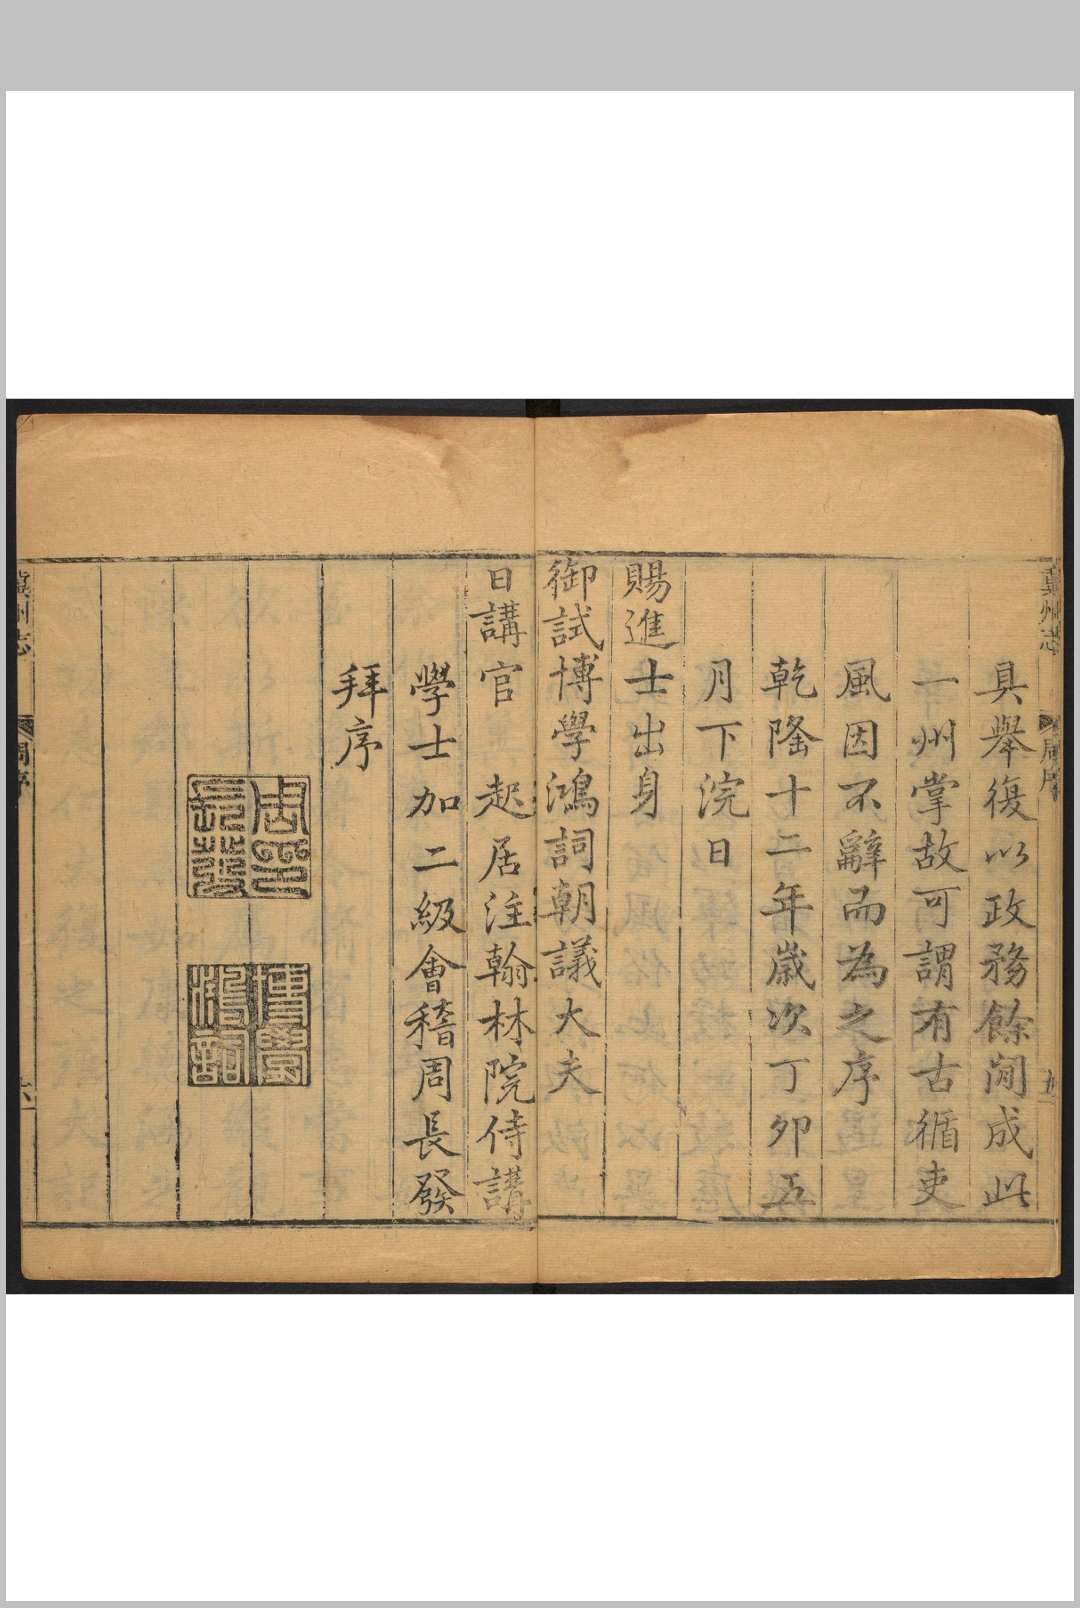 冀州志
周序
五
具舉復以政務餘閒成此
一州掌故可謂有古循吏
風因不辭而為之序
乾隆十二年歲次丁卯五
月下浣日
賜進士出身
御試博學鴻詞朝議大夫
日講官 起居注翰林院侍講
學士加二級會稽周長發
拜序
周長發印
博學鴻詞
冀州志
周序
六